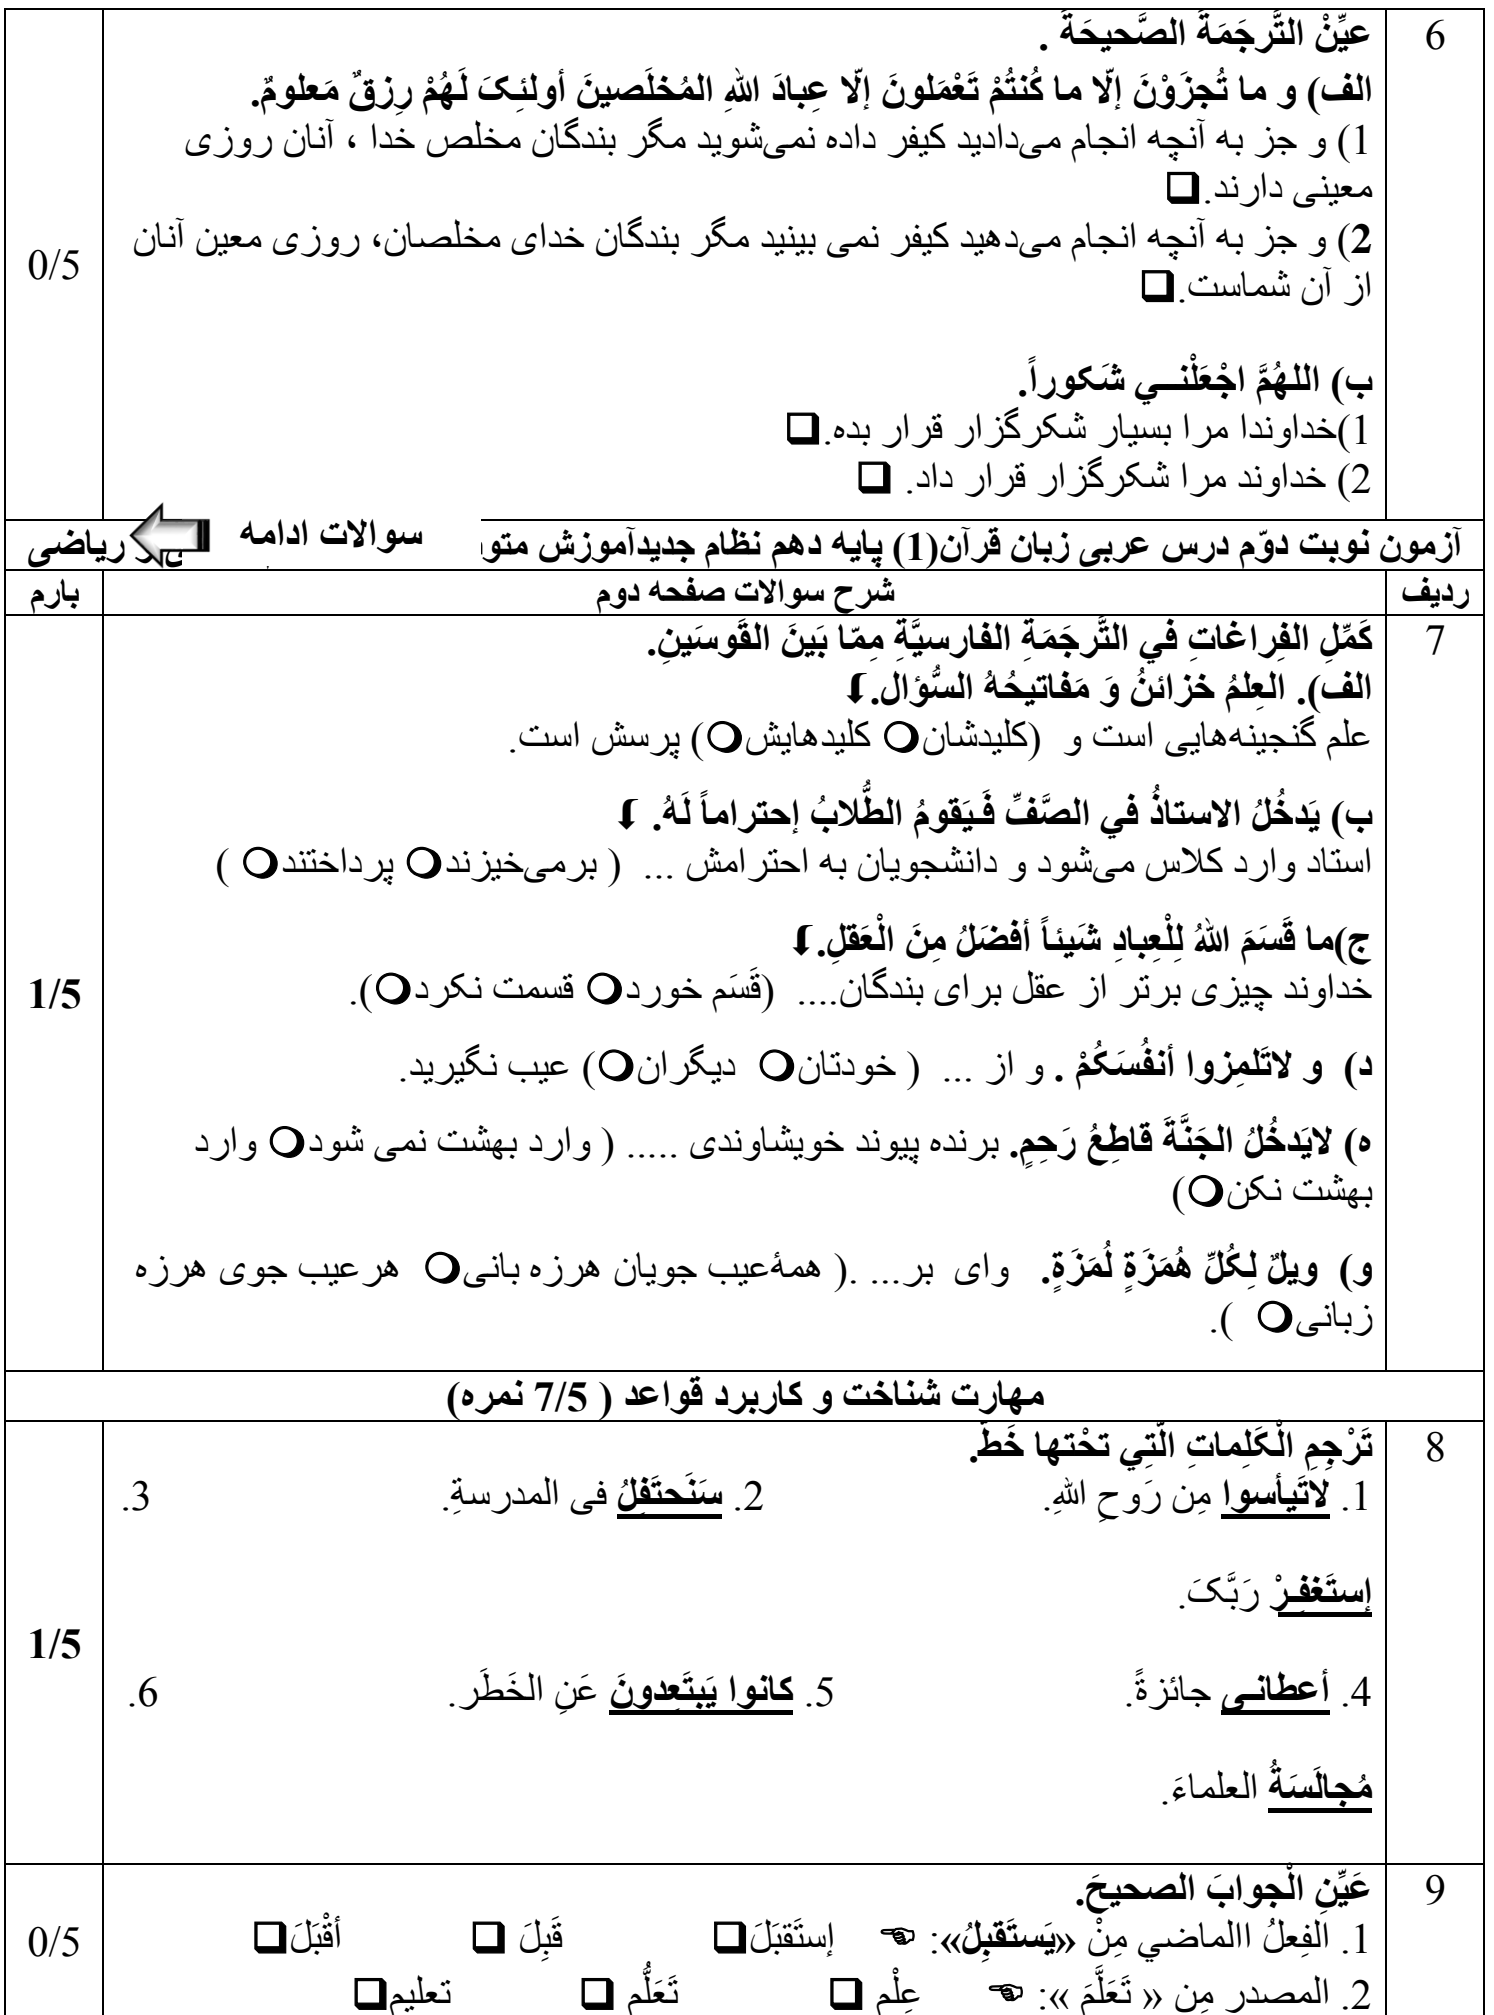 6
عیِّنْ التَّرجَمَةَ الصَّحیحَةَ .
الف) و ما تُجزَوْنَ إلّا ما کُنتُمْ تَعْمَلونَ إلّا عِبادَ اللهِ المُخلَصینَ أولئِکَ لَهُمْ رِزقٌ مَعلومٌ.
1) و جز به آنچه انجام می‌دادید کیفر داده نمی‌شوید مگر بندگان مخلص خدا ، آنان روزی
معینی دارند.❑
2) و جز به آنچه انجام می‌دهید کیفر نمی بینید مگر بندگان خدای مخلصان، روزی معین آنان
از آن شماست.❑
0/5
ب) اللهُمَّ اجْعَلْنـــي شَکوراً.
1)خداوندا مرا بسیار شکرگزار قرار بده.❑
2) خداوند مرا شکرگزار قرار داد. ❑
آزمون نوبت دوّم درس عربی زبان قرآن(1) پایه دهم نظام جدیدآموزش متو
سوالات ادامه
ریاضی
ردیف شرح سوالات صفحه دوم بارم
7
کَمِّلِ الفِراغاتِ في التَّرجَمَةِ الفارسیَّةِ مِمّا بَینَ القَوسَینِ.
الف). العِلمُ خزائنُ وَ مَفاتیحُهُ السُّؤال.
علم گنجینه‌هایی است و (کلیدشان❍ کلیدهایش❍) پرسش است.
ب) یَدخُلُ الاستاذُ في الصَّفِّ فَـیَقومُ الطُّلابُ إحتراماً لَهُ.
استاد وارد کلاس می‌شود و دانشجویان به احترامش ... ( برمی‌خیزند❍ پرداختند❍ )
ج)ما قَسَمَ اللهُ لِلْعِبادِ شَیئاً أفضَلُ مِنَ الْعَقلِ.
خداوند چیزی برتر از عقل برای بندگان.... (قَسَم خورد❍ قسمت نکرد❍).
1/5
د) و لاتَلمِزوا أنفُسَکُمْ . و از ... ( خودتان❍ دیگران❍) عیب نگیرید.
ه) لایَدخُلُ الجَنَّةَ قاطِعُ رَحِمٍ. برنده پیوند خویشاوندی ..... ( وارد بهشت نمی شود❍ وارد
بهشت نکن❍)
و) ویلٌ لِکُلِّ هُمَزَةٍ لُمَزَةٍ. وای بر... .( همۀعیب جویان هرزه بانی❍ هرعیب جوی هرزه
زبانی❍ ).
مهارت شناخت و کاربرد قواعد ( 7/5 نمره)
8
تَرْجِمِ الْکَلِماتِ الَّتِي تحْتها خَطّ.
1. لاتَیأسوا مِن رَوحِ اللهِ. 2. سَنَحتَفِلُ فی المدرسةِ. 3.
إستَغفِـرْ رَبَّکَ.
1/5
4. أعطانـی جائزةً. 5. کانوا یَبتَعِدونَ عَنِ الخَطَر. 6.
مُجالَسَةُ العلماءَ.
9
عَیِّنِ الْجوابَ الصحیحَ.
1. الفِعلُ االماضي مِنْ «یَستَقبِلُ»: ☜ إستَقبَلَ❑ قَبِلَ ❑ أقْبَلَ❑
0/5
2. المصدر مِن « تَعَلَّمَ »: ☜ عِلْم ❑ تَعَلُّم ❑ تعلیم❑